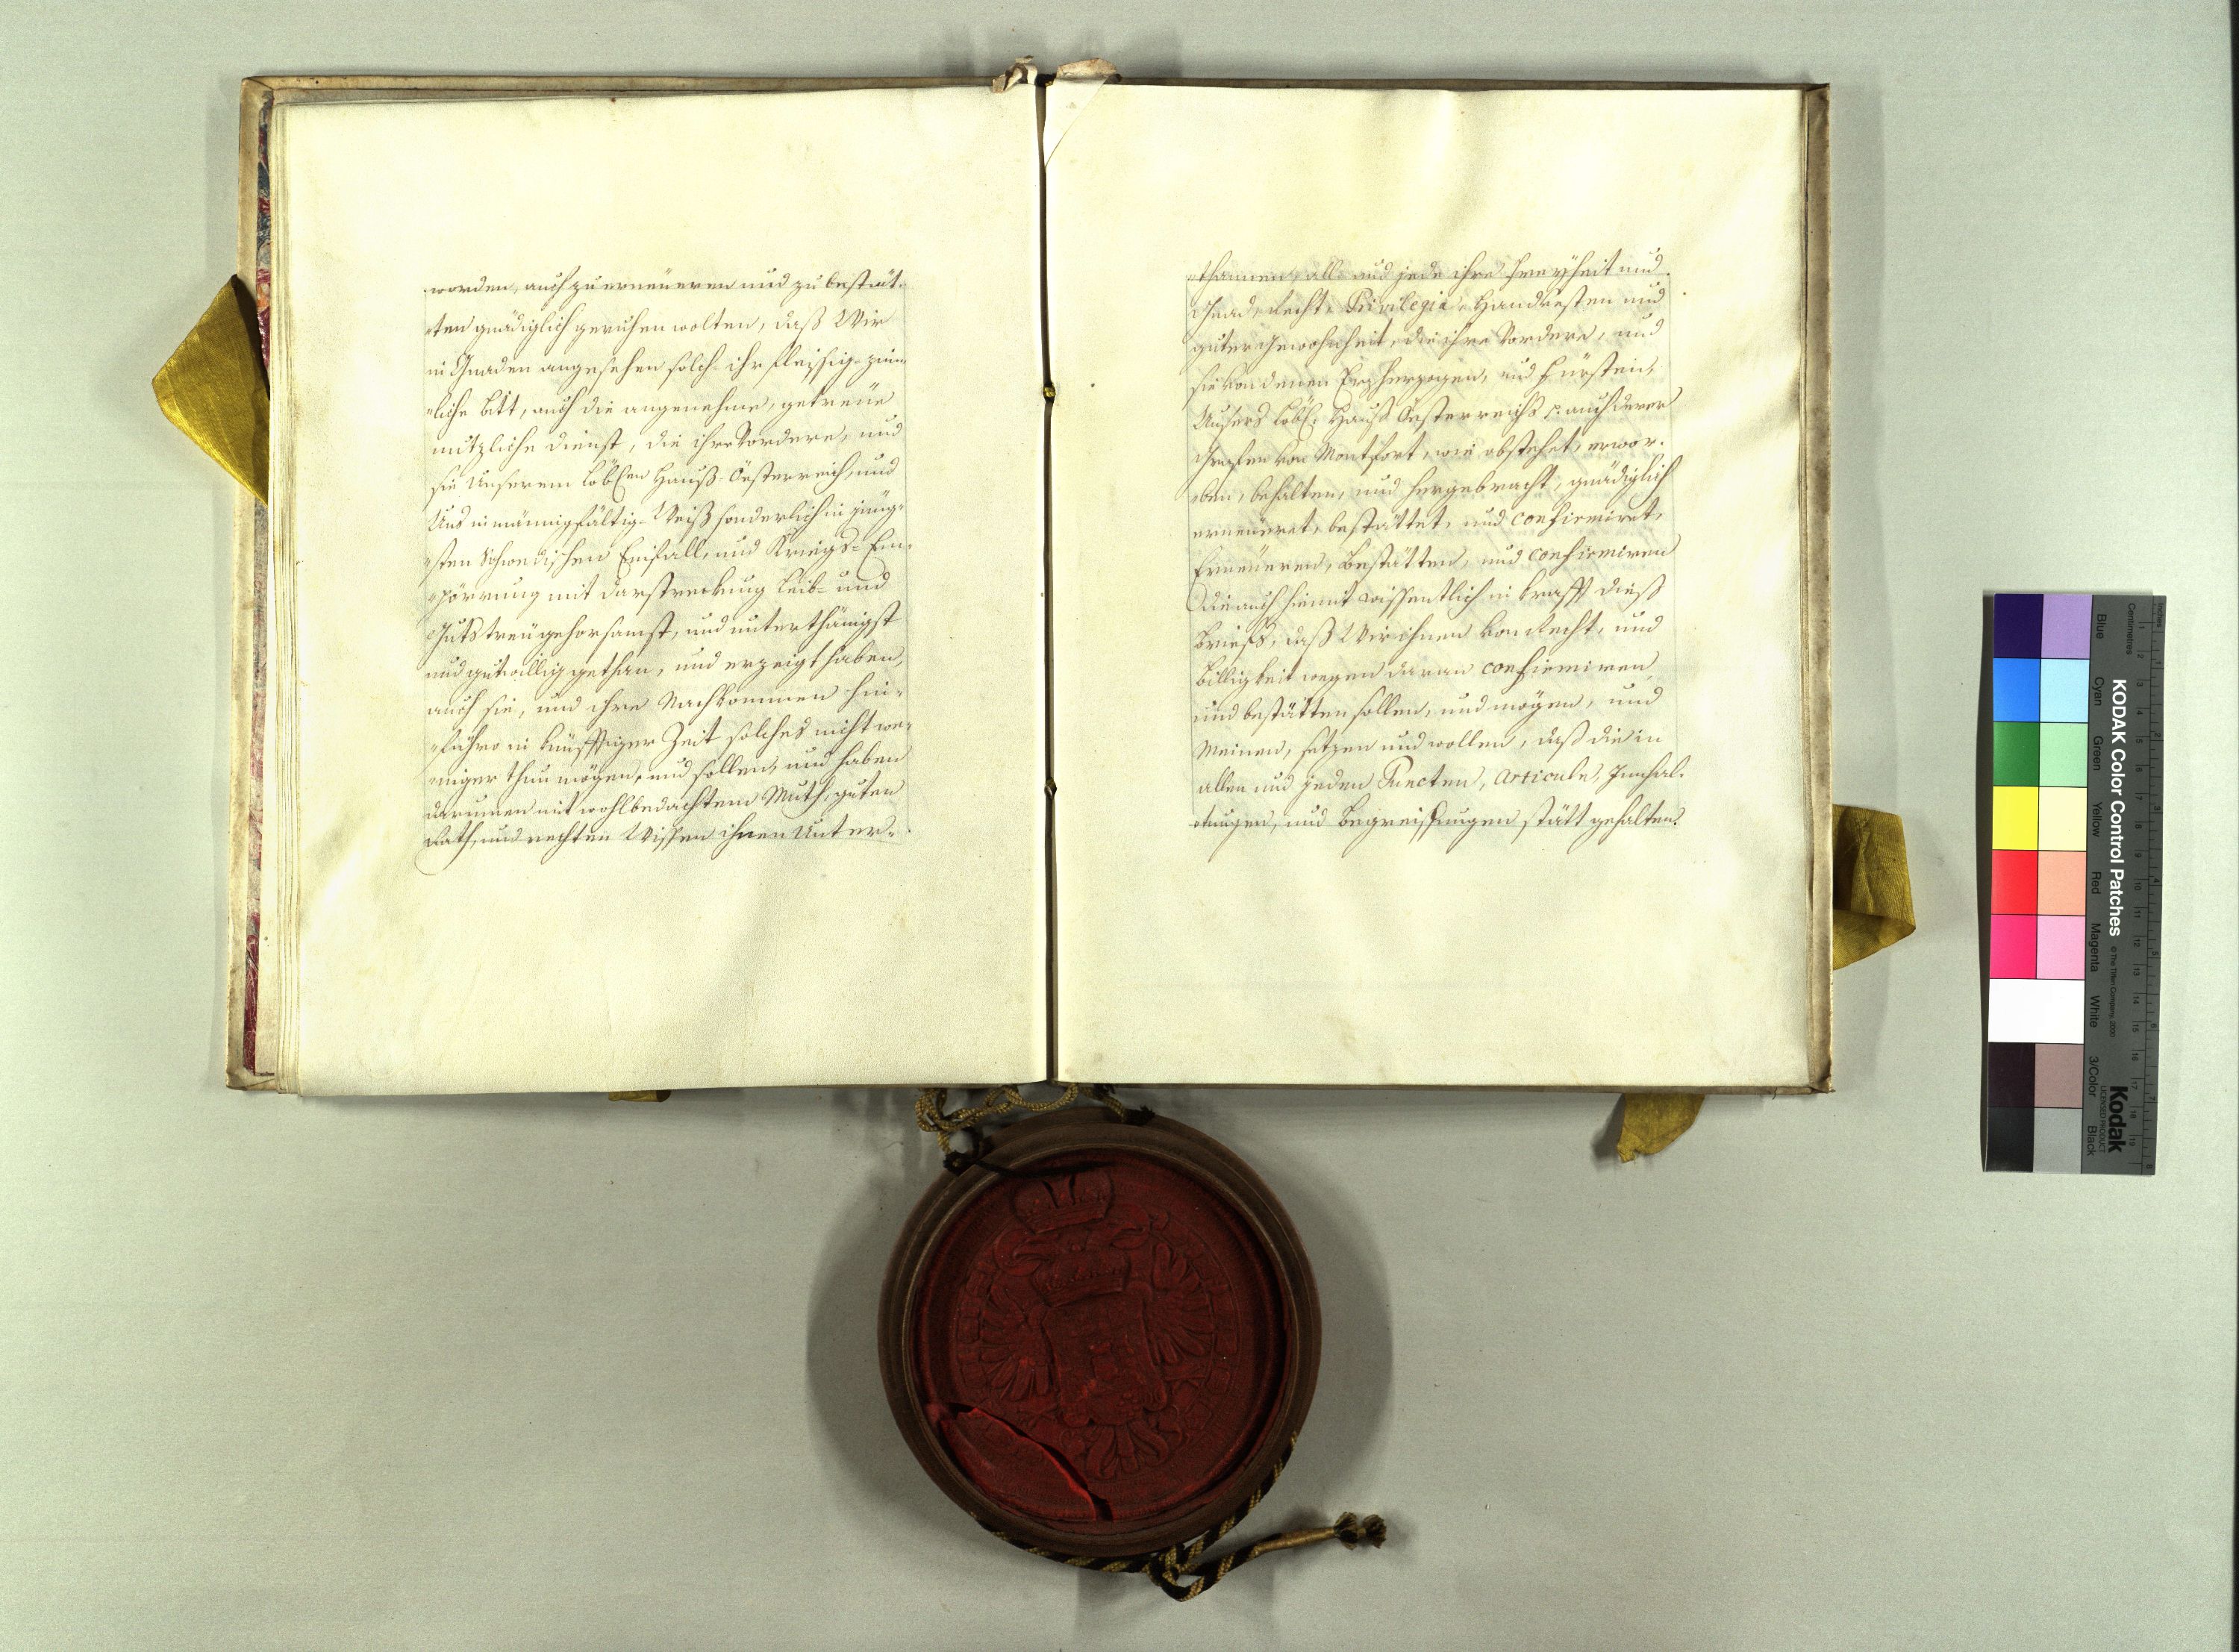 worden, auch zu erneüeren und zu bestät-
-ten gnädiglich geruhen wolten, daß Wir
in Gnaden angesehen solch- ihr fleissig- zim-
-liche bitt, auch die angenehme, getreüe
nutzliche dienst, die ihre Vordere, und
sie Unserem löbl.en Hauß-Oesterreich, und
Uns in männigfältig-Weiß sonderlich in jüng-
-sten Schwedischen Einfall, und Kriegs-Em-
-pörrung mit darstreckung Leib- und
Guts treü gehorsamst, und unterthänigst
und gutwillig gethan, und erzeigt haben,
auch sie, und ihre Nachkommen hin-
-führo in künfftiger Zeit solches nicht we-
-niger thun mögen, und sollen, und haben
darumen mit wohlbedachtem Muth, guten
Rath, und rechten Wissen ihnen Unter-
-thannen, all- und jede ihre Freyheit und
Gnad, Recht, Privilegia, Handvesten und
guter Gewohnheit, die ihre Vordere, und
sie von denen Erzherzogen, und Fürsten,
Unsers löbl: Hauß Oesterreichs p: auch derer
Grafen von Montfort, wie obstehet, erwor-
-ben, behalten, und hergebracht, gnädiglich
erneüeret, bestättet, und confirmiret,
Erneüeren, Bestätten, und confirmiren
die auch hiemit wissentlich in krafft dieß
briefs, daß Wir ihnen von Recht, und
billigkeit wegen daran confirmiren,
und bestätten sollen, und mögen, und
Meinen, setzen und wollen, daß die in
allen und jeden Puncten, Articuln, Innhal-
-tungen, und Begreiffungen stätt gehalten,
KODAK Color Control Patches
© The Tiffen Company, 2000
Kodak
LICENSED PRODUCT
Blue Cyan Green Yellow Red Magenta White 3/Color Black
Centimetres
Inches
1 2 3 4 5 6 7 8 9 10 11 12 13 14 15 16 17 18 19
1 2 3 4 5 6 7 8